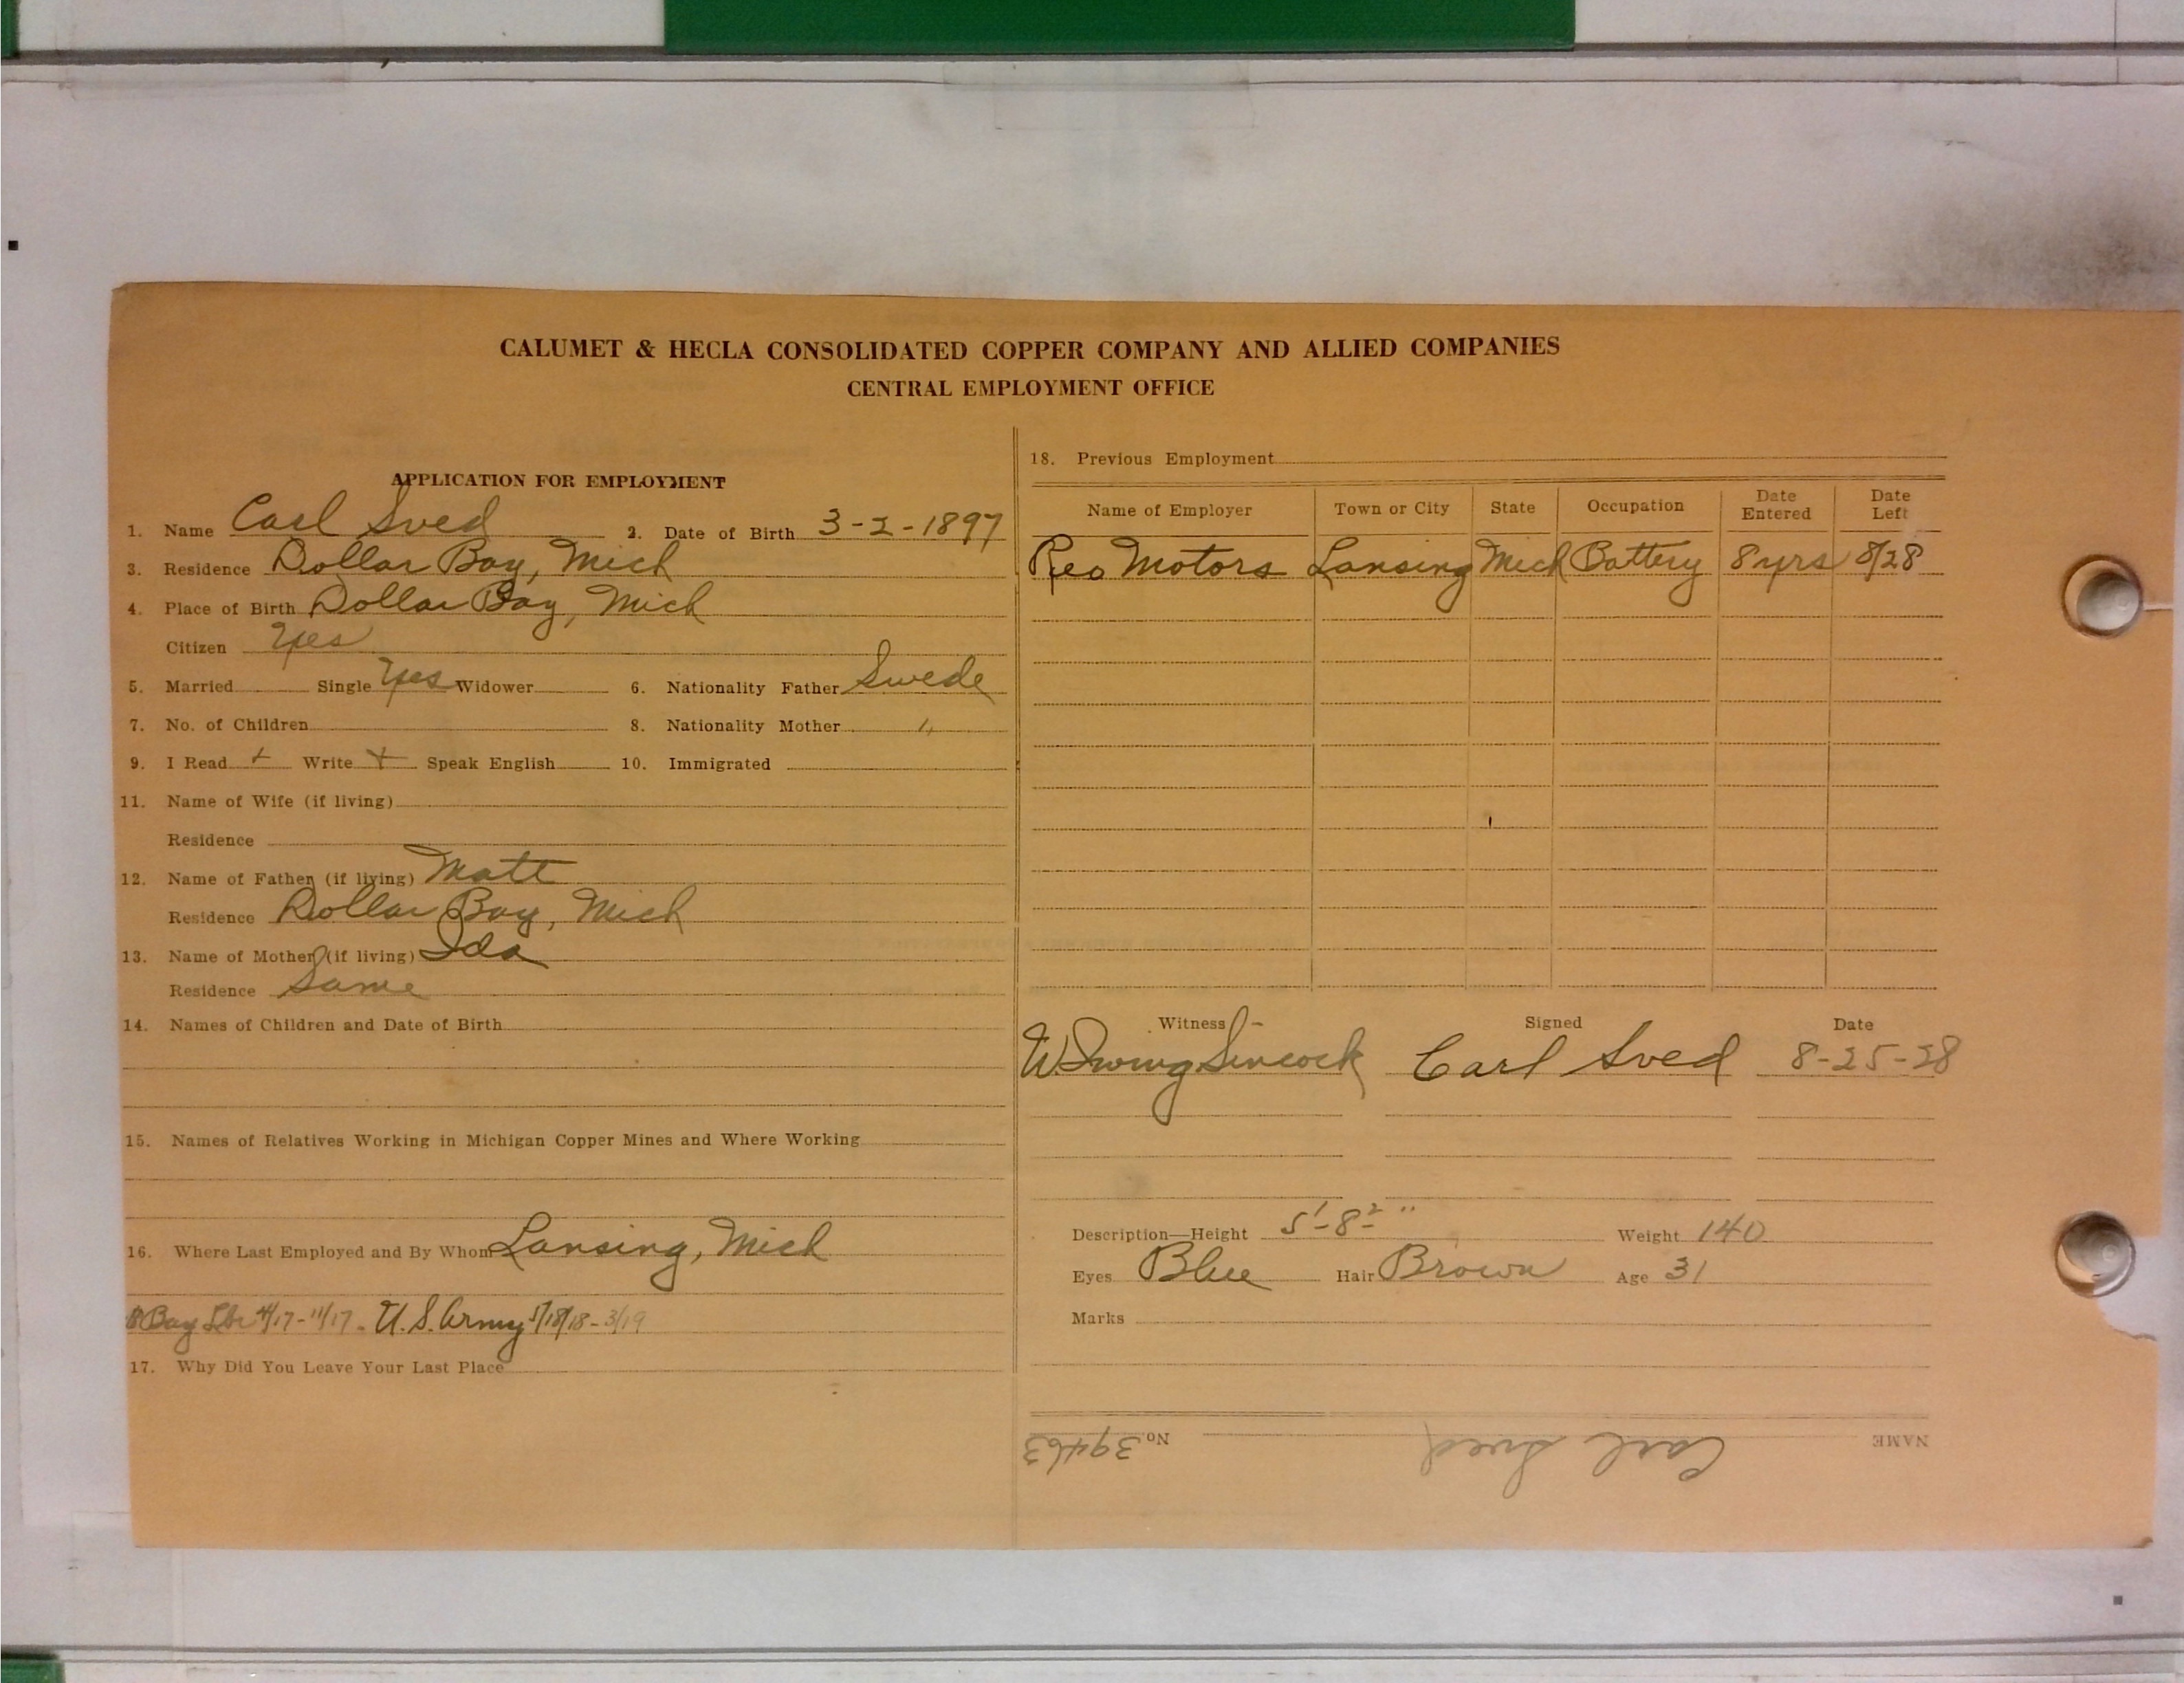 CALUMET & HECLA CONSOLIDATED COPPER COMPANY AND ALLIED COMPANIES
CENTRAL EMPLOYMENT OFFICE
APPLICATION FOR EMPLOYMENT
1. Name Carl Sved 2. Date of Birth 3-2-1897
3. Residence Dollar Bay, Mich
4. Place of Birth Dollar Bay, Mich
Citizen Yes
5. Married Single Yes Widower 6. Nationality Father Swede
7. No. of Children 8. Nationality Mother "
9. I Read + Write + Speak English 10. Immigrated
11. Name of Wife (if living)
Residence
12. Name of Father (if living) Matt
Residence Dollar Bay, Mich
13. Name of Mother (if living) Ida
Residence Same
14. Names of Children and Date of Birth
15. Names of Relatives Working in Michigan Copper Mines and Where Working
16. Where Last Employed and By Whom Lansing, Mich
Bay 4/17-11/17. U.S. Army 5/18/18-3/19
17. Why Did You Leave Your Last Place
18. Previous Employment
Name of Employer Town or City State Occupation Date Entered Date Left
Reo Motors Lansing Mich Battery 8 yrs 8/28
Witness Signed Date
W. Irving Sincock Carl Sved 8-25-28
Description—Height 5'-8 Weight 140
Eyes Blue Hair Brown Age 31
Marks
NAME Carl Sved No. 39463